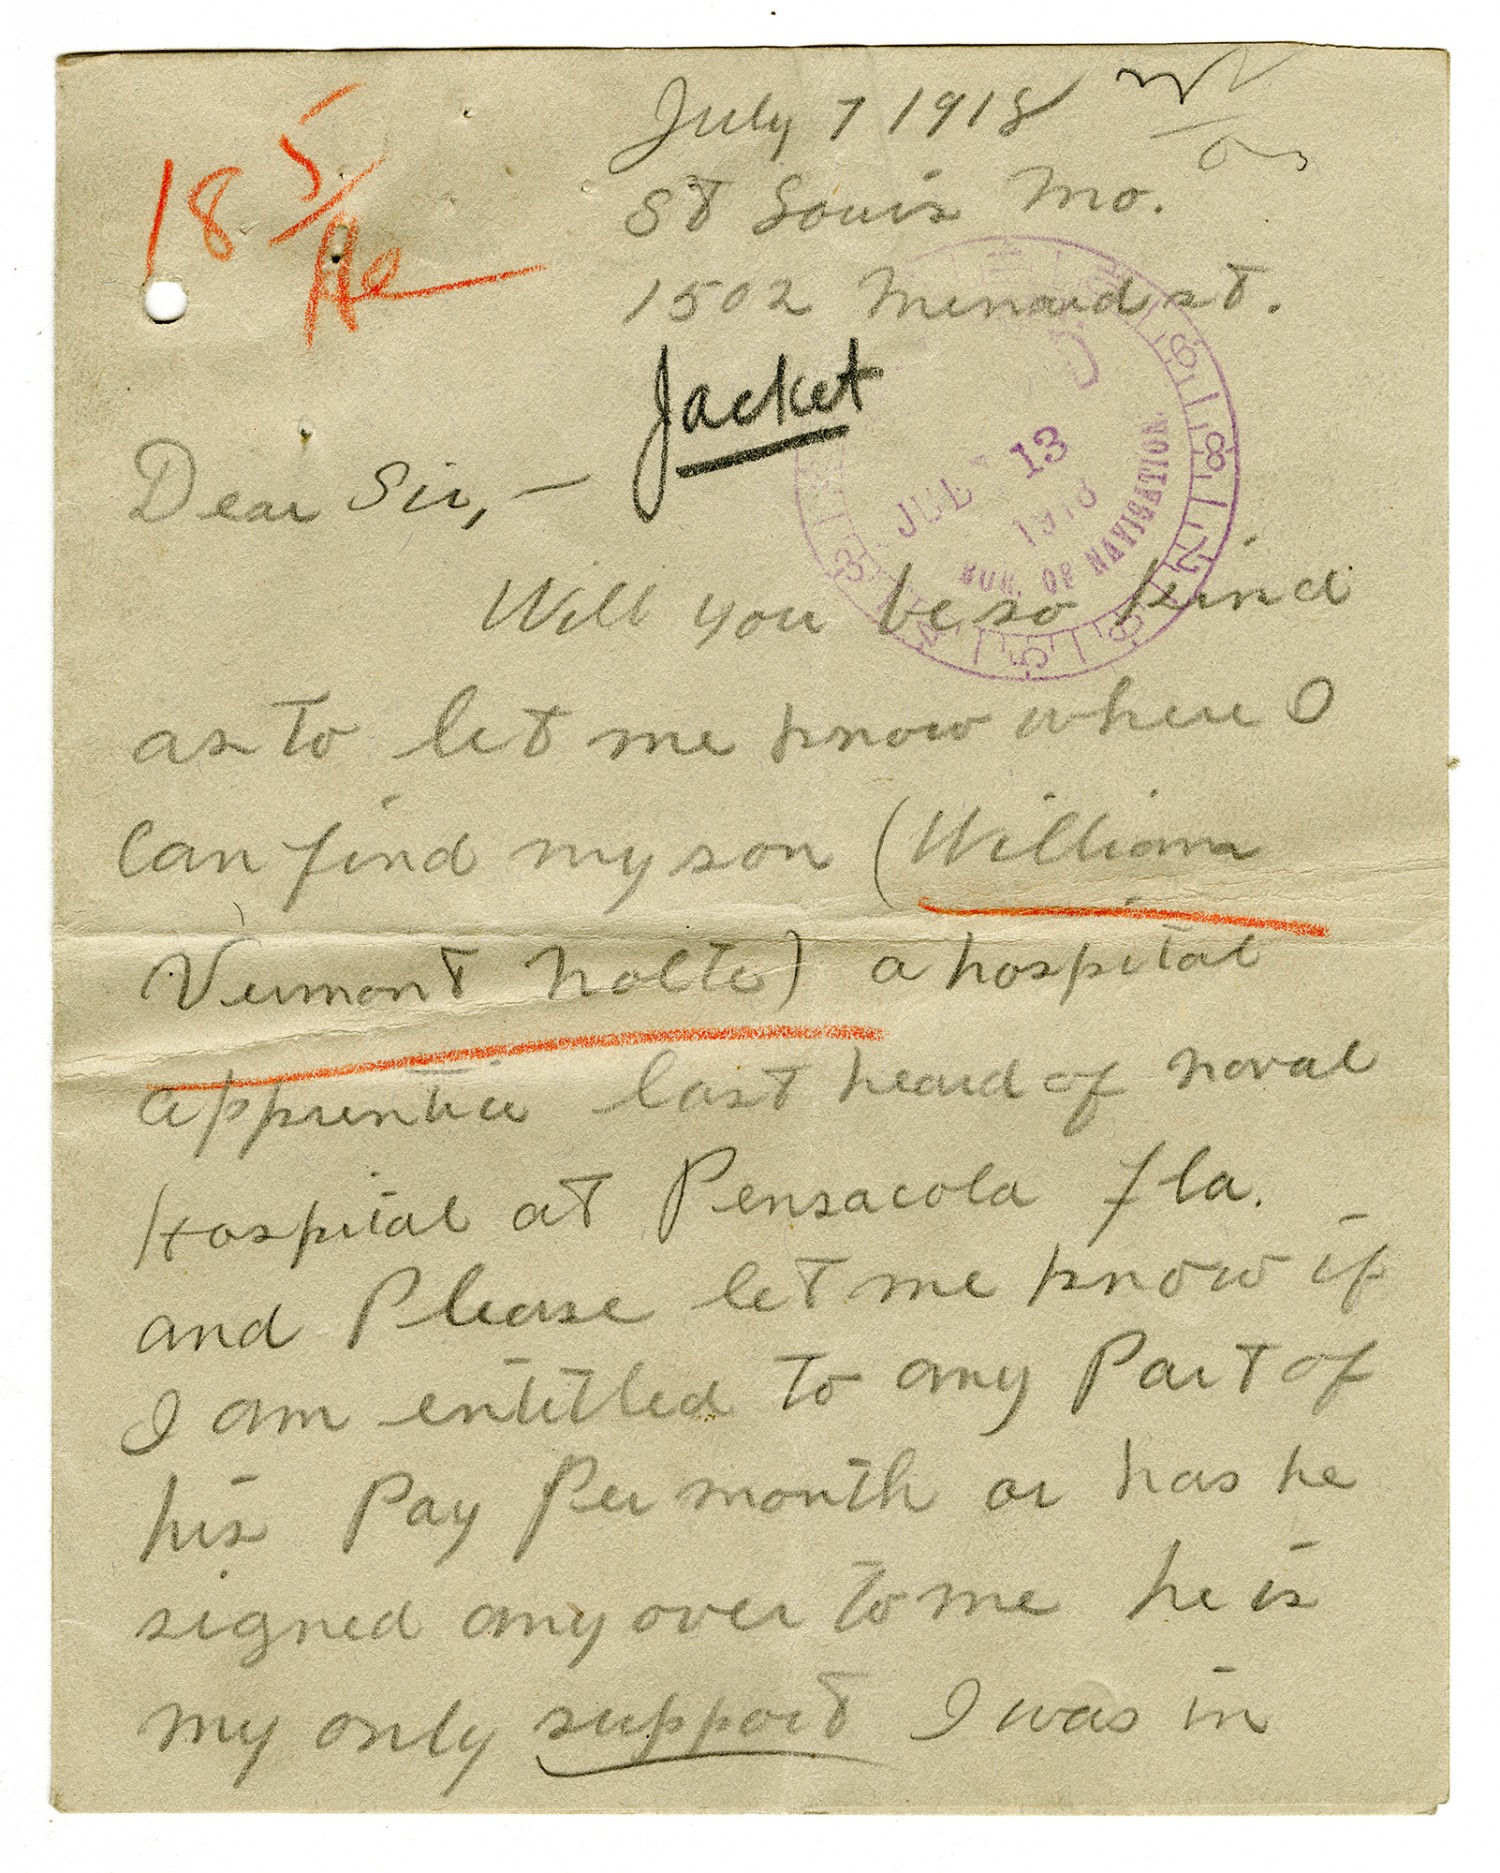 July 7 1918
18 5/
St Louis Mo.
1502 Menard st.
Jacket
JUL 13
1918
BUR. OF NAVIGATION.
Dear Sir, —
Will you be so kind
as to let me know where I
Can find my son (William
Vermont Nolte) a hospital
apprentice last heard of naval
Hospital at Pensacola Fla.
and Please let me know if
I am entitled to any Part of
his Pay Per month or has he
signed any over to me he is
my only support I was in